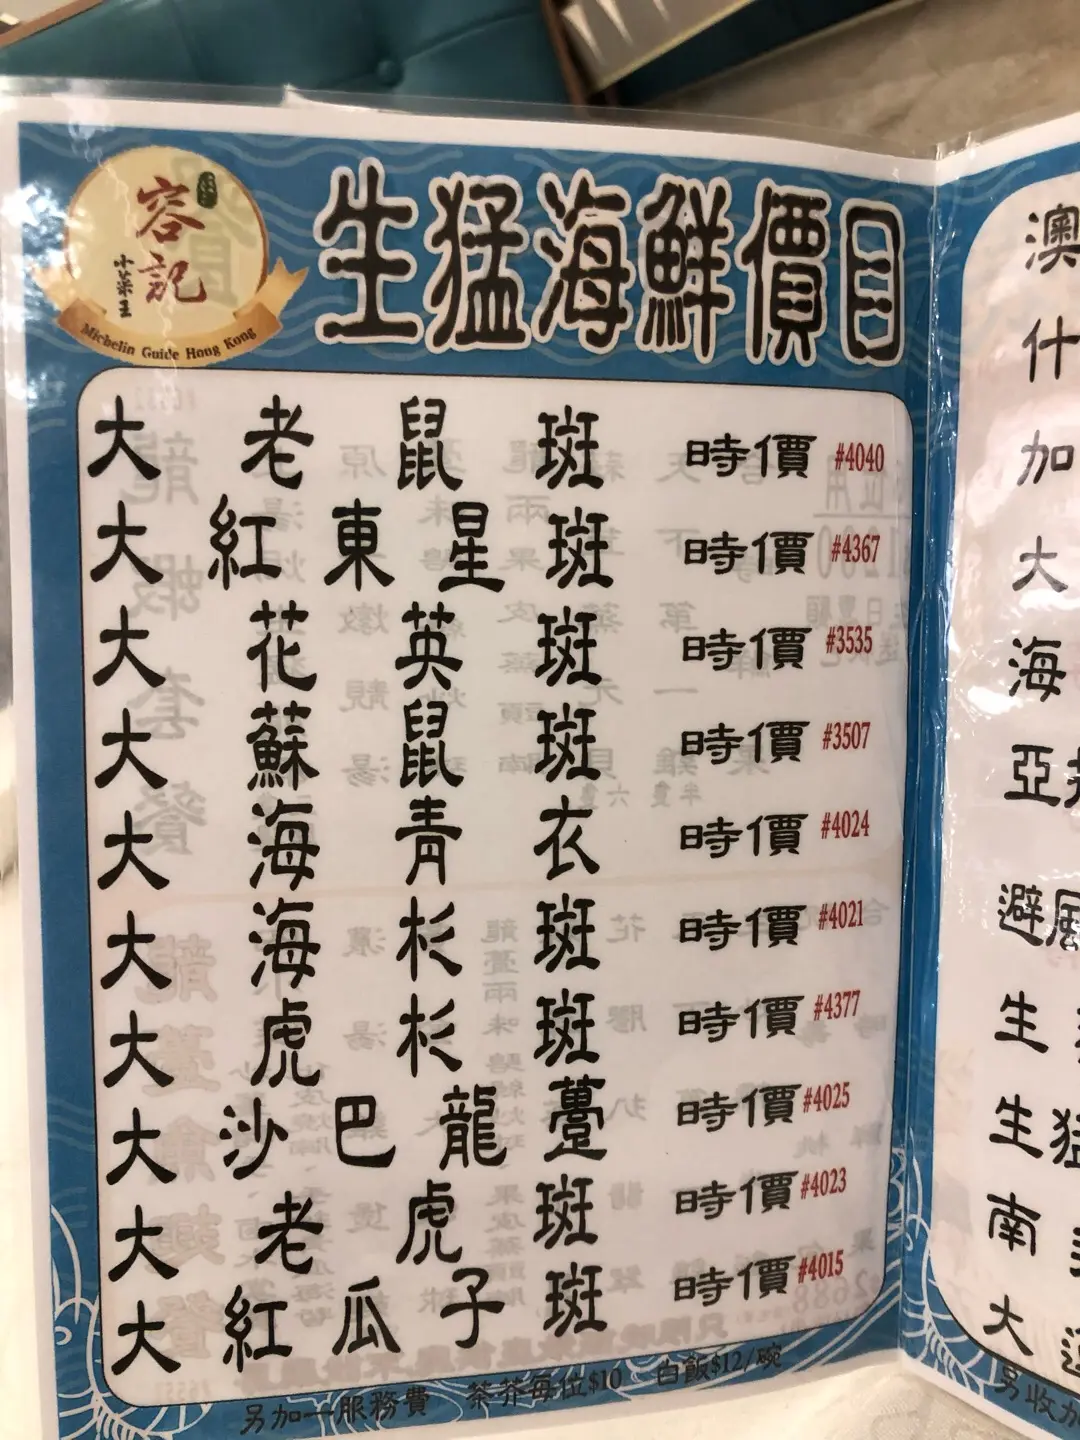 容記
小菜王
Michelin Guide Hong Kong
生猛海鮮價目
大老鼠斑 時價 #4040
大紅東星斑 時價 #4367
大花英斑 時價 #3535
大蘇鼠斑 時價 #3507
大海青衣 時價 #4024
大海杉斑 時價 #4021
大虎杉斑 時價 #4377
大沙巴龍躉 時價 #4025
大老虎斑 時價 #4023
大紅瓜子斑 時價 #4015
另加一服務費 茶芥每位$10 白飯$12/碗
澳
什
加
大
海
亞
避風
生
生猛
南
大
另收加